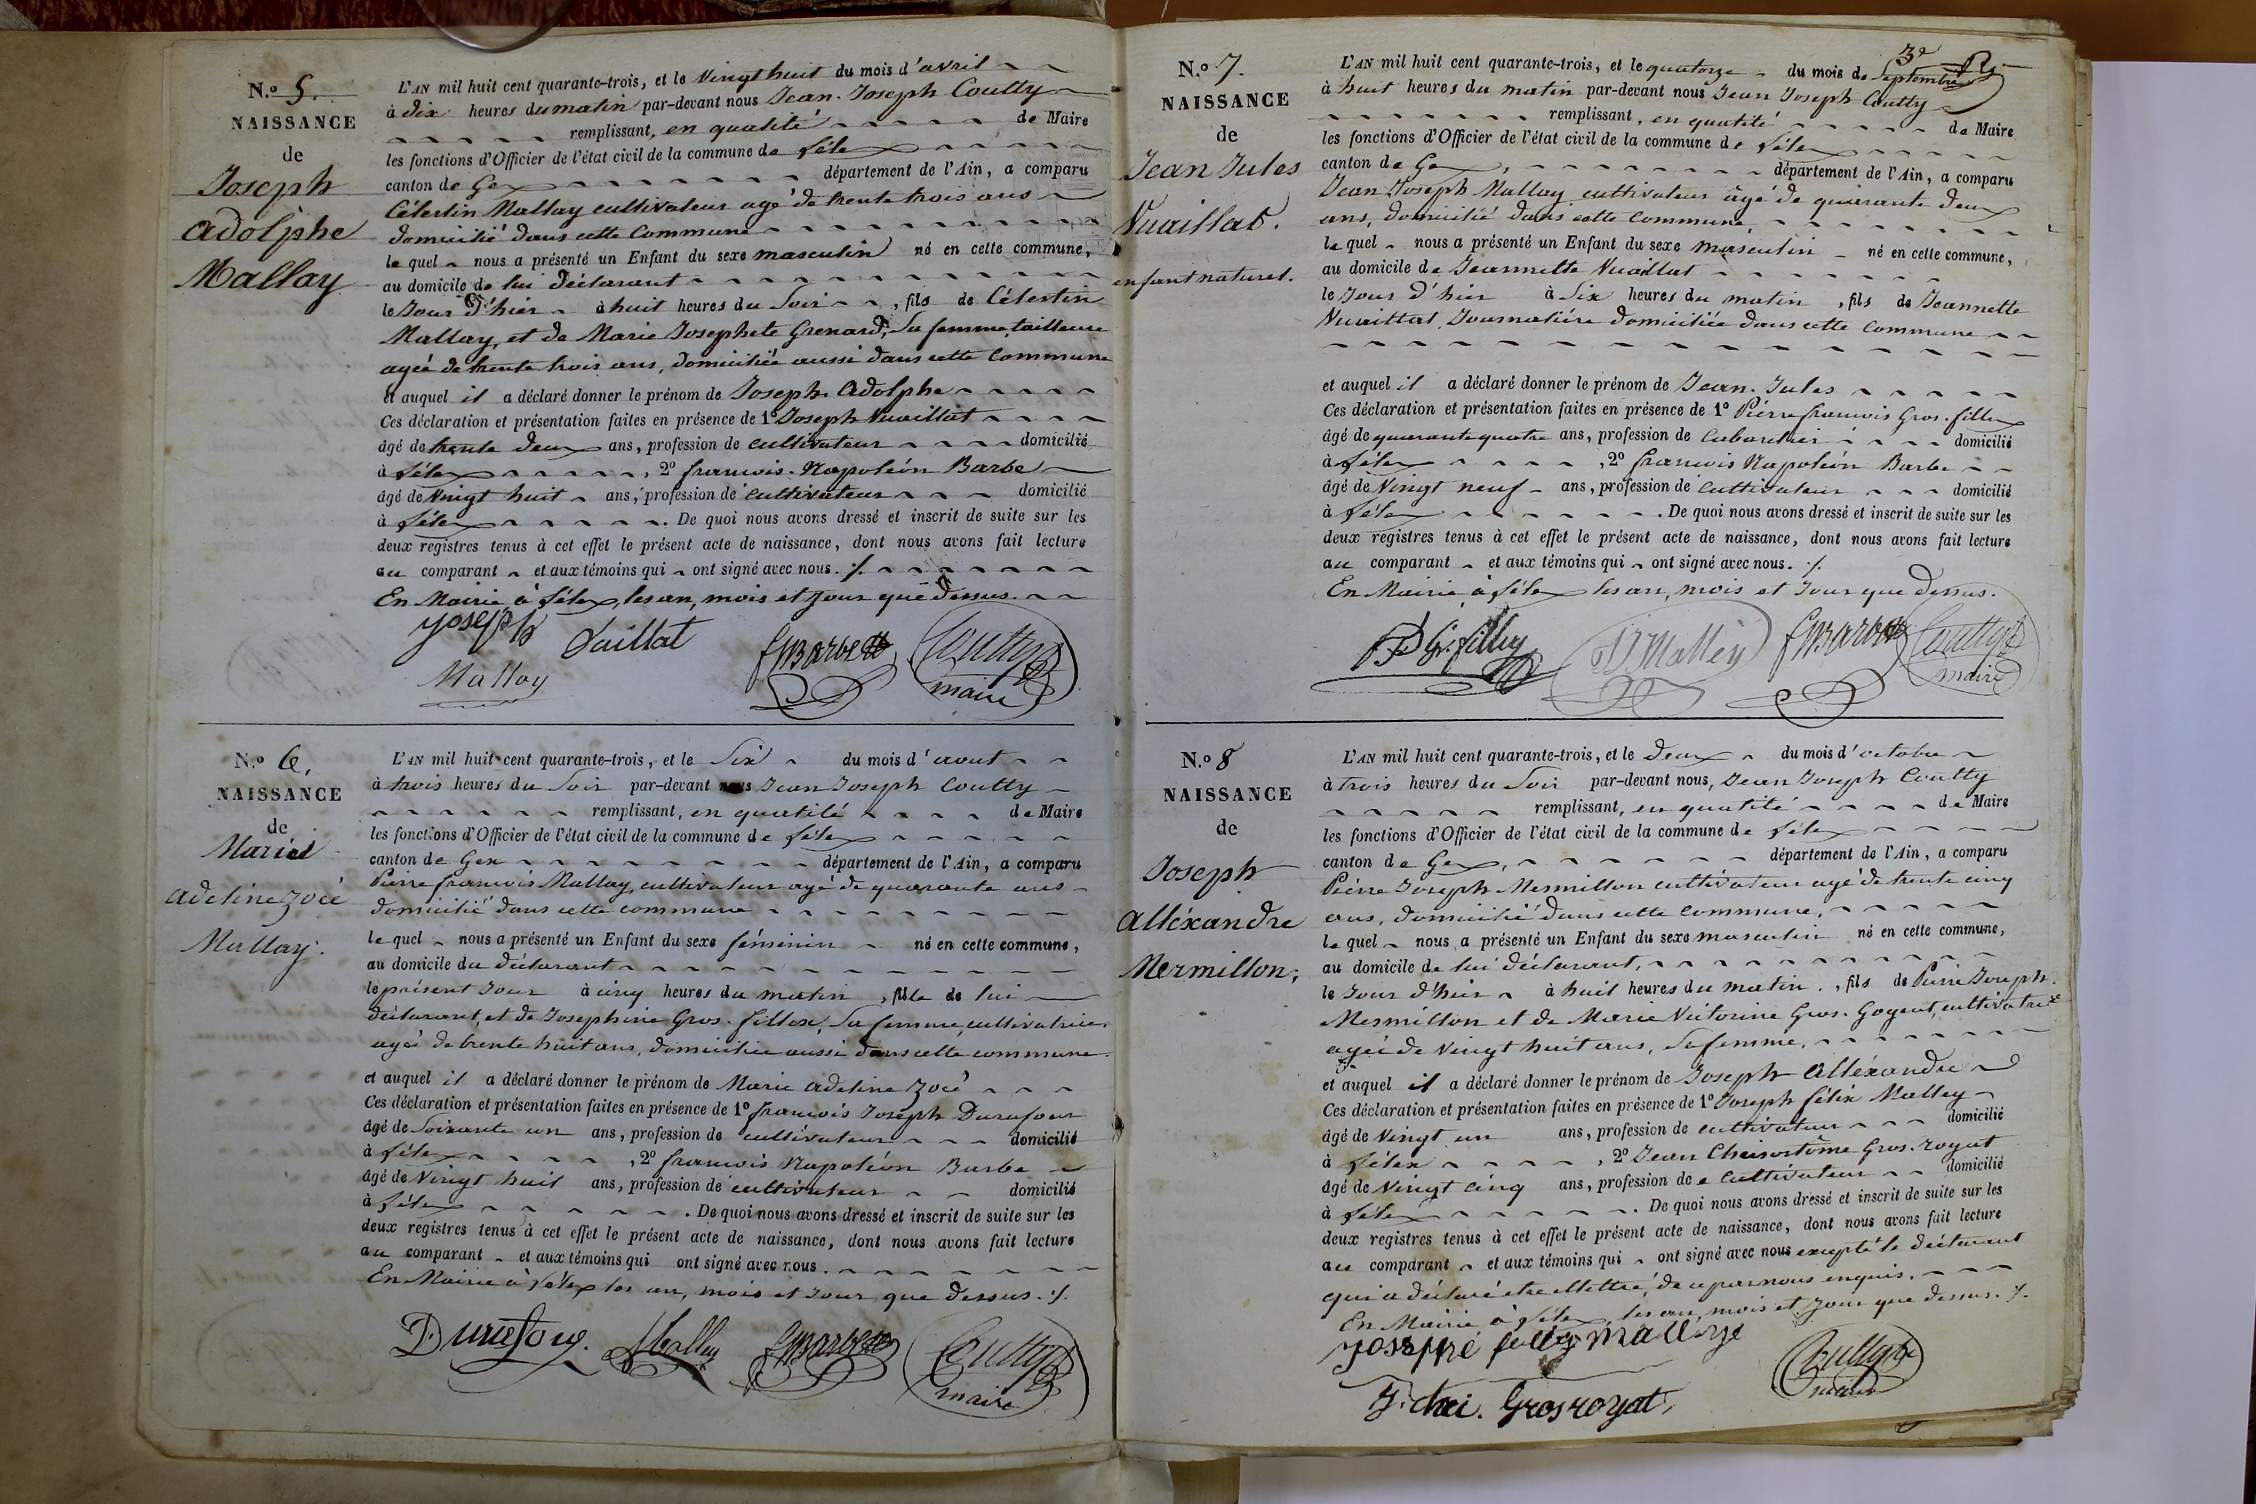 N.o 5.
NAISSANCE
de
Joseph
Adolphe
Mallay
L'AN mil huit cent quarante-trois, et le vingt huit du mois d'avril
à dix heures du matin par-devant nous Jean-Joseph Coutty
remplissant, en qualité de Maire
les fonctions d'Officier de l'état civil de la commune de Lélex
canton de Gex département de l'Ain, a comparu
Célestin Mallay cultivateur agé de trente trois ans
domicilié dans cette Commune
le quel nous a présenté un Enfant du sexe masculin né en cette commune,
au domicile de lui déclarant
le Jour d'hier à huit heures du Soir, fils de Célestin
Mallay, et de Marie Josephete Grenard, Sa femme, tailleuse
agée de trente trois ans, domiciliée aussi dans cette Commune
et auquel il a déclaré donner le prénom de Joseph Adolphe
Ces déclaration et présentation faites en présence de 1o Joseph Vuaillat
âgé de trente deux ans, profession de cultivateur domicilié
à Lélex, 2o francois-Napoléon Barbe
âgé de Vingt huit ans, profession de cultivateur domicilié
à Lélex. De quoi nous avons dressé et inscrit de suite sur les
deux registres tenus à cet effet le présent acte de naissance, dont nous avons fait lecture
au comparant et aux témoins qui ont signé avec nous. ./.
En Mairie à Lélex, les an, mois et Jour que dessus.
Joseph Vaillat
Mallay
fNBarbe
Coutty
maire
N.o 6.
NAISSANCE
de
Marie
adeline zoé
Mallay.
L'AN mil huit cent quarante-trois, et le Six du mois d'aout
à trois heures du Soir par-devant nous Jean Joseph Coutty
remplissant, en qualité de Maire
les fonctions d'Officier de l'état civil de la commune de Lélex
canton de Gex département de l'Ain, a comparu
Pierre francois Mallay, cultivateur agé de quarante ans
domicilié dans cette commune
le quel nous a présenté un Enfant du sexe féminin né en cette commune,
au domicile du déclarant
le présent Jour à cinq heures du matin, fille de lui
déclarant, et de Josephine Gros-fillex, Sa femme, cultivatrice
agée de trente huit ans, domiciliée aussi dans cette commune.
et auquel il a déclaré donner le prénom de Marie adeline zoé
Ces déclaration et présentation faites en présence de 1o francois Joseph Durafour
âgé de Soixante un ans, profession de cultivateur domicilié
à Lélex, 2o francois Napoléon Barbe
âgé de Vingt huit ans, profession de cultivateur domicilié
à Lélex. De quoi nous avons dressé et inscrit de suite sur les
deux registres tenus à cet effet le présent acte de naissance, dont nous avons fait lecture
au comparant et aux témoins qui ont signé avec nous.
En Mairie à Lélex les an, mois et Jour que dessus. ./.
Durafour.
Mallay
fNBarbe
Coutty
maire
3e
N.o 7.
NAISSANCE
de
Jean Jules
Vuaillat.
enfant naturel.
L'AN mil huit cent quarante-trois, et le quatorze du mois de Septembre
à huit heures du matin par-devant nous Jean Joseph Coutty
remplissant, en qualité de Maire
les fonctions d'Officier de l'état civil de la commune de Lélex
canton de Gex, département de l'Ain, a comparu
Jean Joseph Mallay cultivateur âgé de quarante deux
ans, domicilié dans cette commune,
le quel nous a présenté un Enfant du sexe masculin né en cette commune,
au domicile de Jeannette Vuaillat
le Jour d'hier à Six heures du matin, fils de Jeannette
Vuaillat, Journaliére domiciliée dans cette commune
et auquel il a déclaré donner le prénom de Jean-Jules
Ces déclaration et présentation faites en présence de 1o Pierre francois Gros-fillex
âgé de quarante quatre ans, profession de Cabaretier domicilié
à Lélex, 2o francois Napoléon Barbe
âgé de Vingt neuf ans, profession de Cultivateur domicilié
à Lélex. De quoi nous avons dressé et inscrit de suite sur les
deux registres tenus à cet effet le présent acte de naissance, dont nous avons fait lecture
au comparant et aux témoins qui ont signé avec nous. ./.
En Mairie à Lélex les an, mois et Jour que dessus.
JJMalley
fNBarbe
Coutty
maire
N.o 8
NAISSANCE
de
Joseph
alléxandre
Mermillon;
L'AN mil huit cent quarante-trois, et le deux du mois d'octobre
à trois heures du Soir par-devant nous, Jean Joseph Coutty
remplissant, en qualité de Maire
les fonctions d'Officier de l'état civil de la commune de Lélex
canton de Gex, département de l'Ain, a comparu
Pierre Joseph Mermillon cultivateur agé de trente cinq
ans, domicilié dans cette commune,
le quel nous a présenté un Enfant du sexe masculin né en cette commune,
au domicile de lui déclarant,
le Jour d'hier à huit heures du matin, fils de Pierre Joseph
Mermillon et de Marie Victorine Gros-Goyent, cultivatrice
agée de vingt huit ans, Sa femme,
et auquel il a déclaré donner le prénom de Joseph Alléxandre
Ces déclaration et présentation faites en présence de 1o Joseph félix Malley
âgé de Vingt un ans, profession de cultivateur domicilié
à Lélex, 2o Jean Chrisostôme Gros-royat
âgé de Vingt cinq ans, profession de Cultivateur domicilié
à Lélex. De quoi nous avons dressé et inscrit de suite sur les
deux registres tenus à cet effet le présent acte de naissance, dont nous avons fait lecture
au comparant et aux témoins qui ont signé avec nous excepté le déclarant
qui a déclaré etre illettré, de ce par nous enquis.
En Mairie à Lélex, les an, mois et Jour que dessus. ./.
J. chri. Grosroyat
Coutty
maire